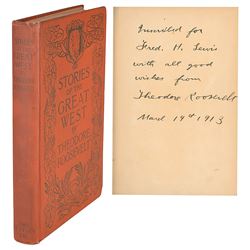 STORIES
OF THE
GREAT
WEST
BY
THEODORE
ROOSEVELT
Inscribed for
Fred. H. Lewis
with all good
wishes from
Theodore Roosevelt
March 19th 1913